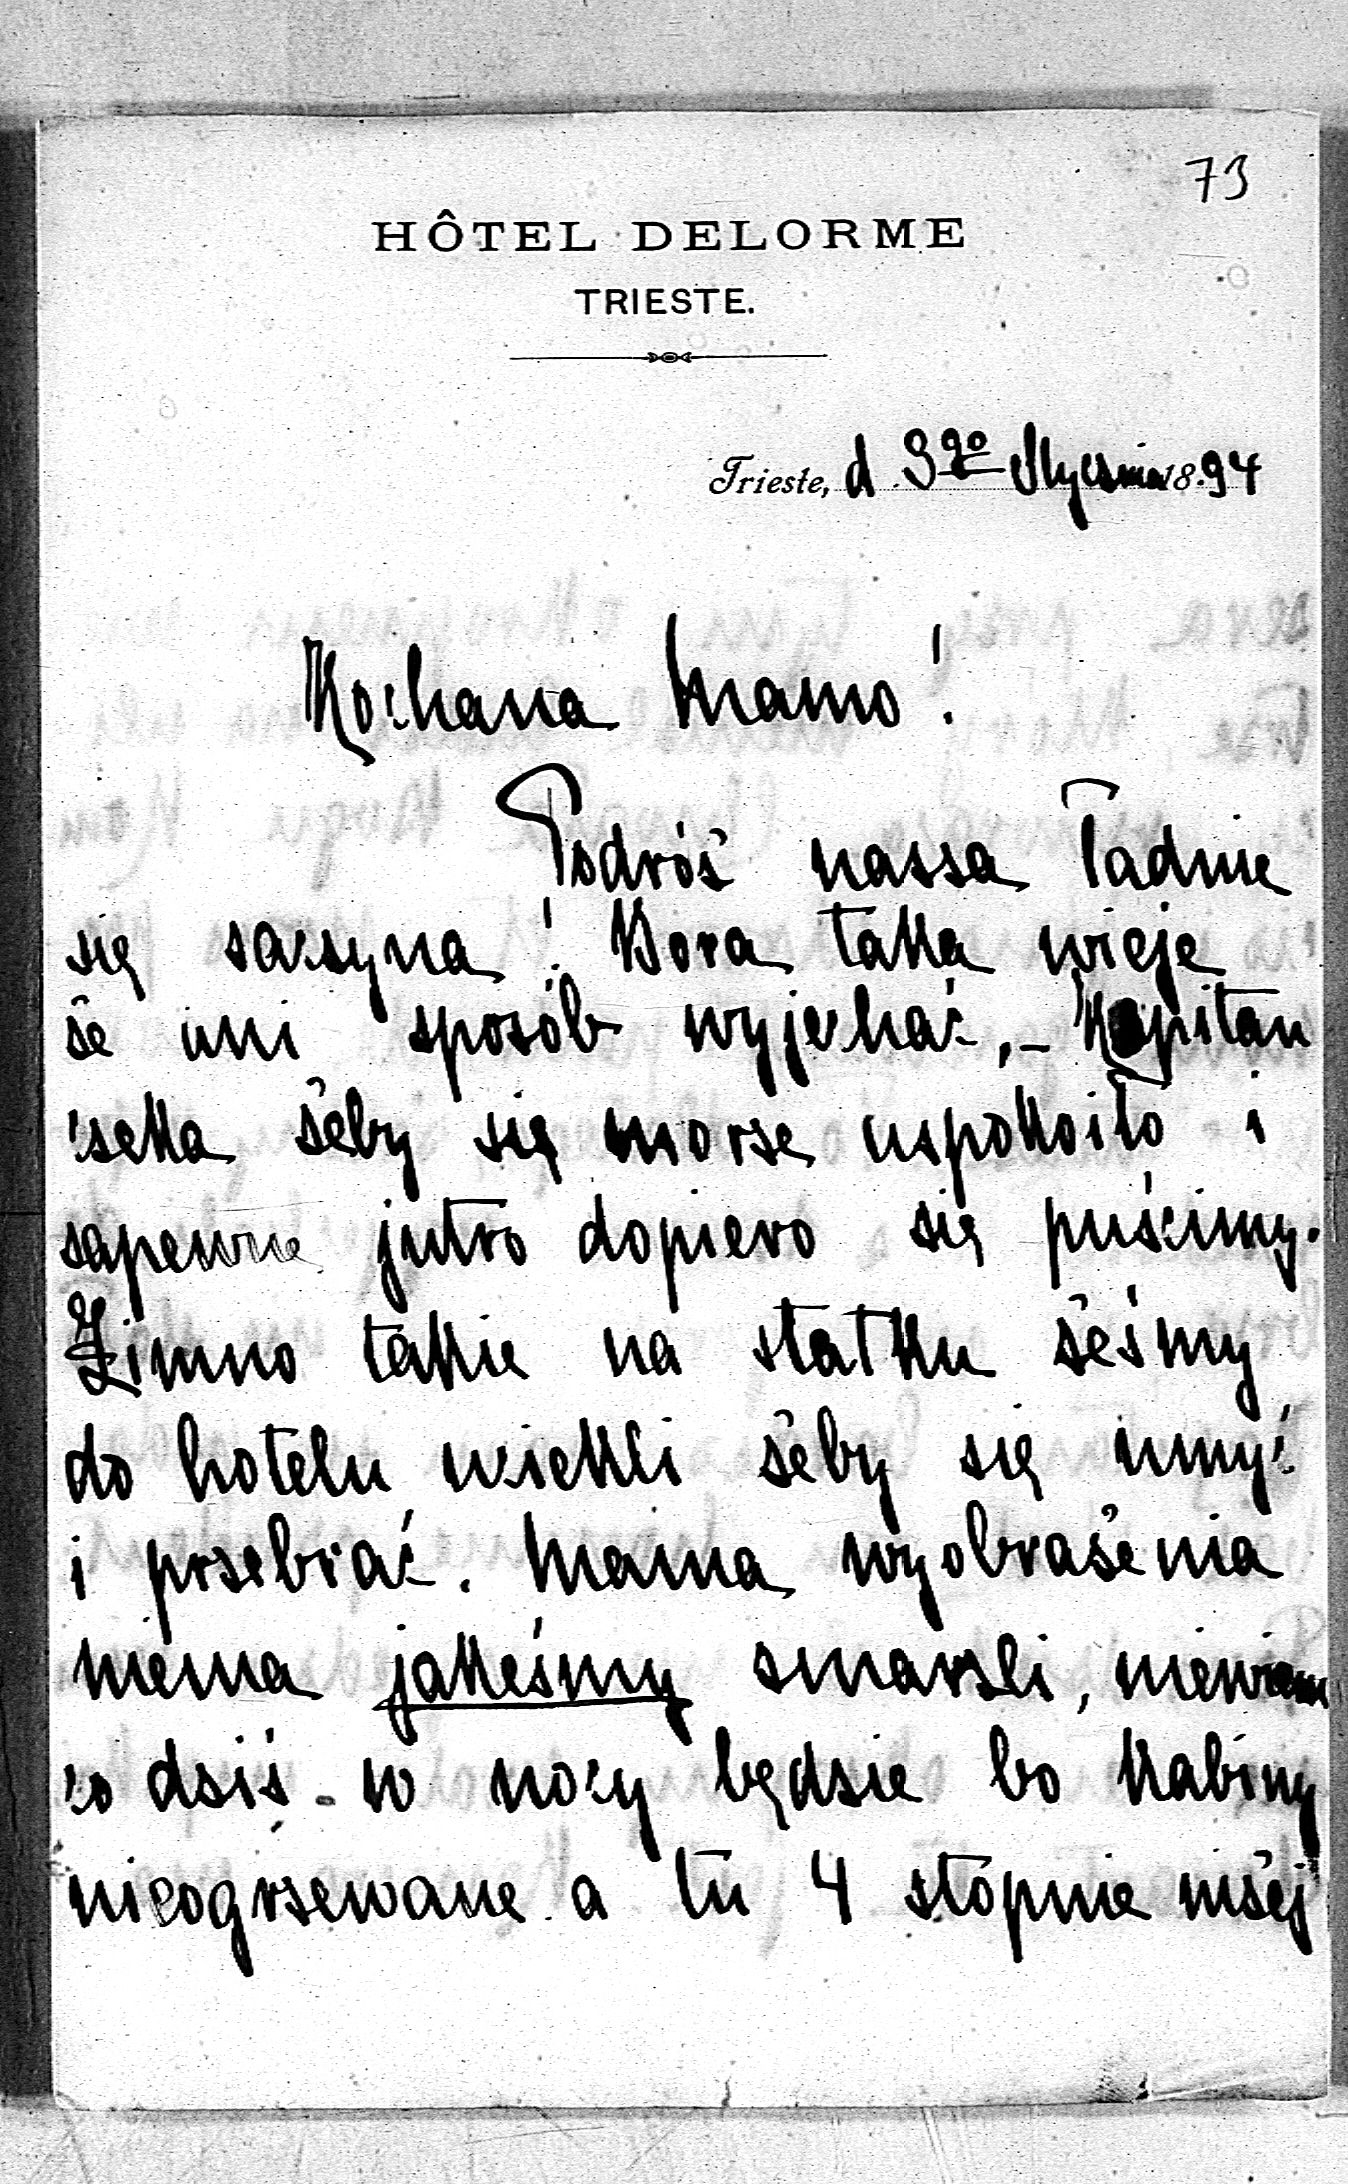 73
HÔTEL DELORME
TRIESTE.
Trieste, d 3go Stycznia 1894
Kochana Mamo!
Podróż nasza ładnie
się zaczyna! Bora taka wieje
że ani sposób wyjechać, – Kapitan
czeka żeby się morze uspokoiło i
zapewne jutro dopiero się puścimy.
Zimno takie na statku żeśmy
do hotelu uciekli żeby się umyć
i przebrać. Mama wyobrażenia
niema jakeśmy zmarzli, niewiem
co dziś w nocy będzie bo kabiny
nieogrzewane a tu 4 stopnie niżej